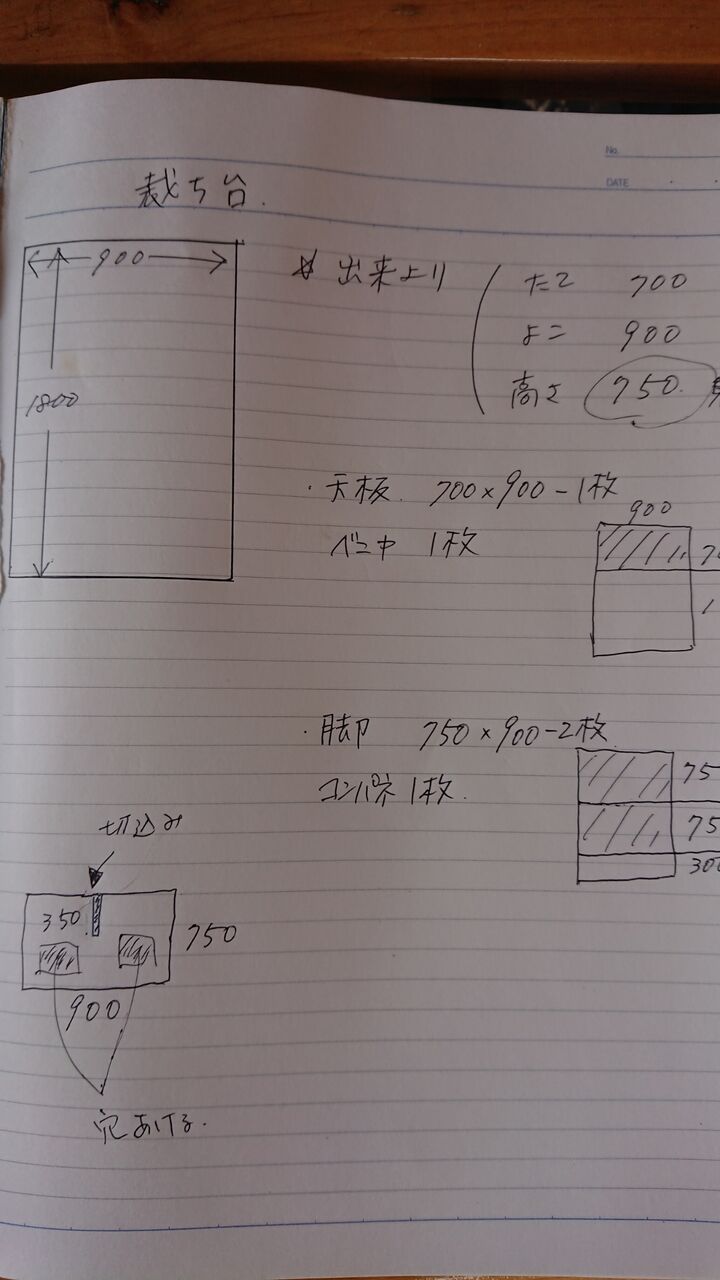 No.
DATE
裁ち台.
900
1800
※ 出来上り
たて 700
よこ 900
高さ 750
・天板 700×900-1枚
ベニヤ 1枚
900
・脚 750×900-2枚
コンパネ 1枚.
300
切込み
350
750
900
穴あける.